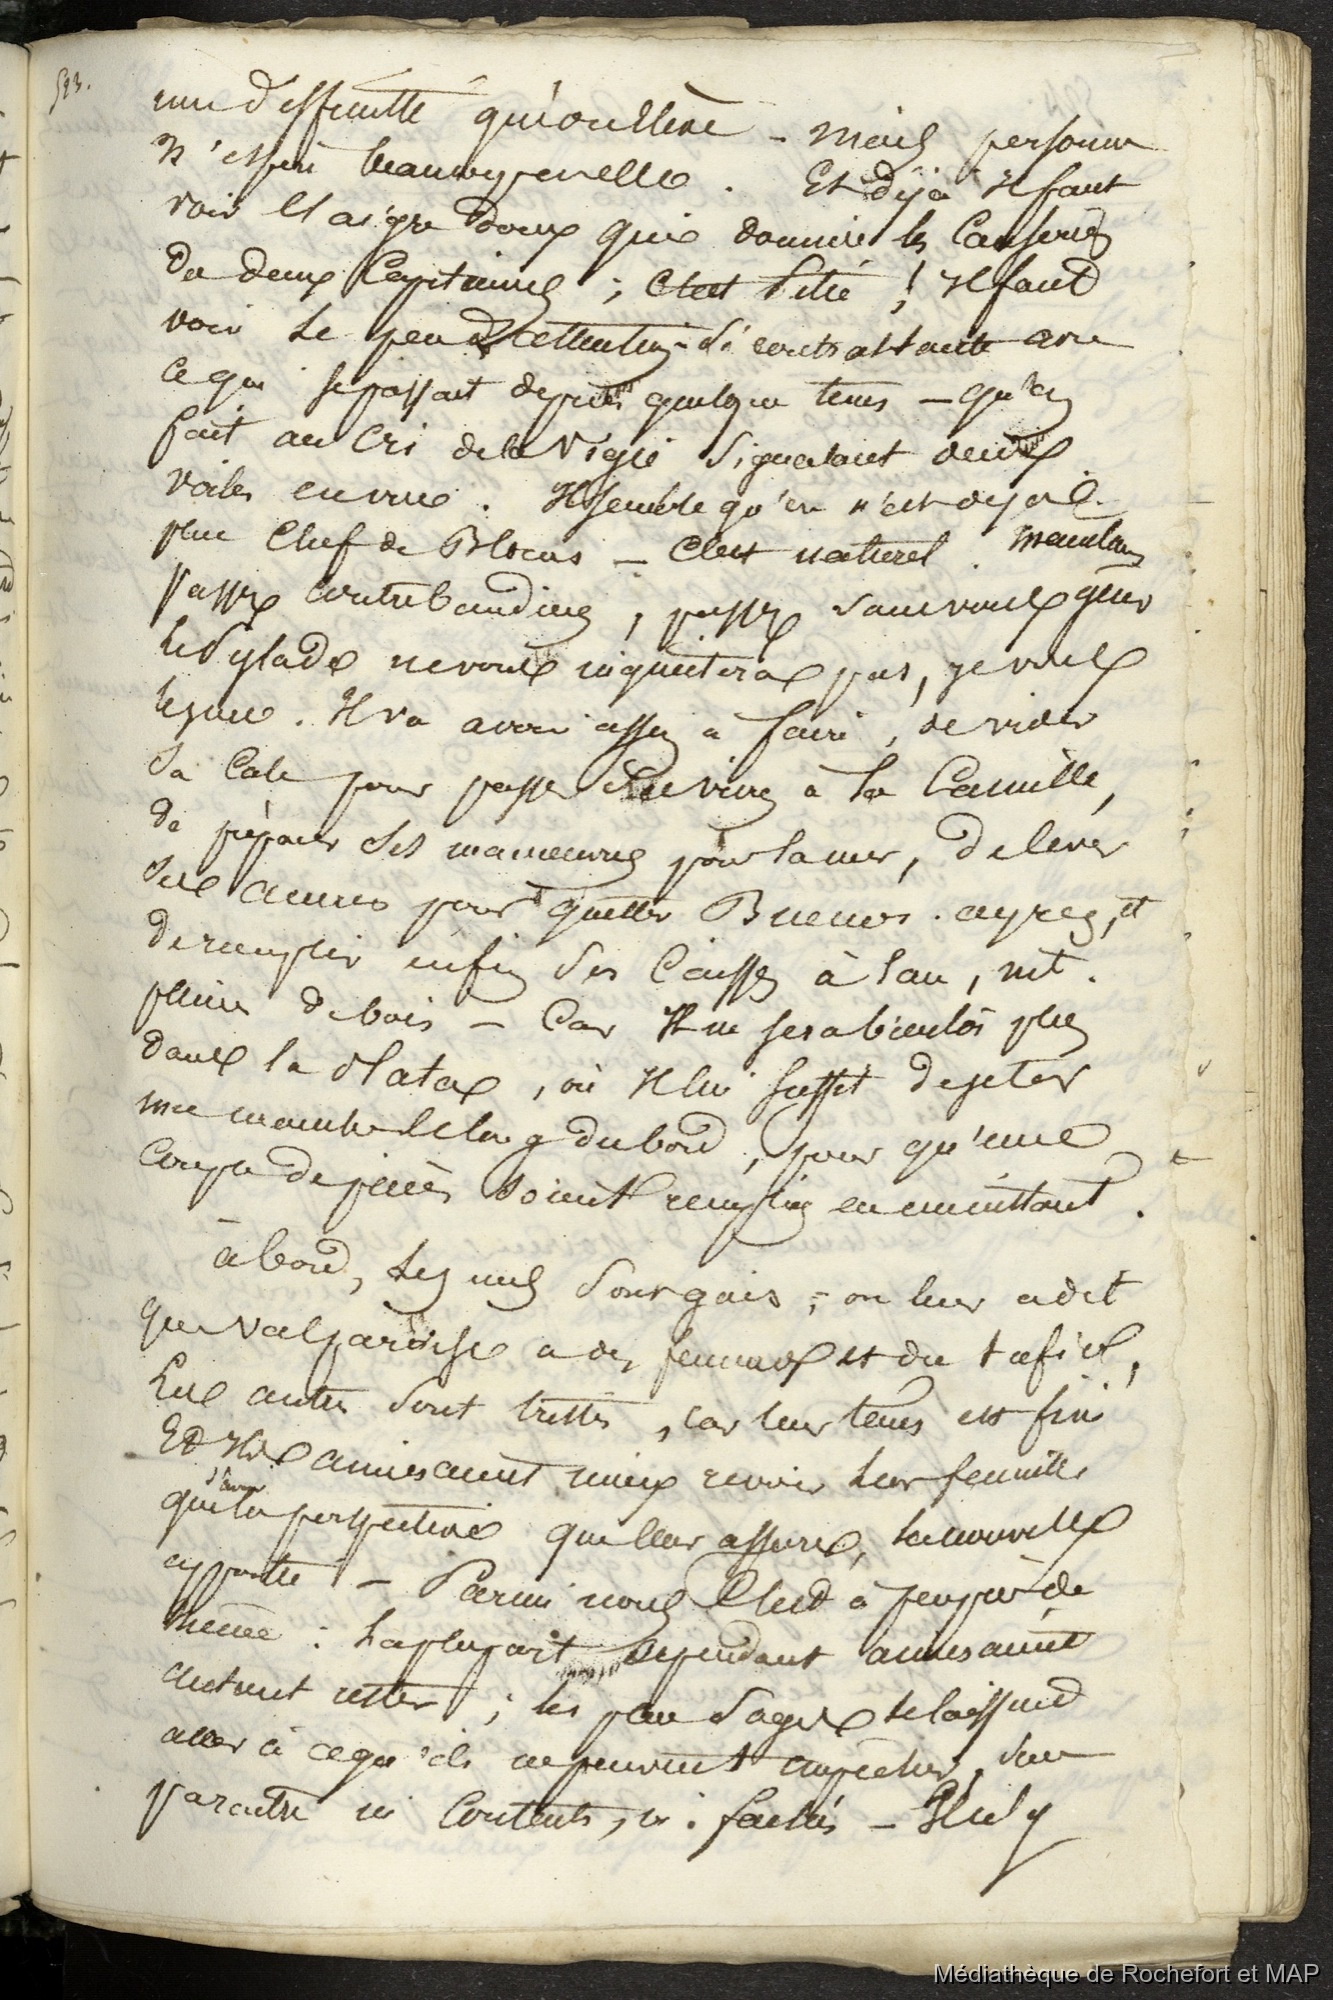 593.
une difficulté qu'on élève - mais personne
n'est pas Et déjà il faut
voir l'aigre doux qui domine les causeries
de deux Capitaines ; c'est pitié ! Il faut
voir le peu d'attention si contrastante avec
ce qui se passait depuis quelque tems - qu'on
fait au cri de la Vigie signalant deux
voiles en vue. Il semble qu'on n'est déjà
plus Chef de Blocus - C'est naturel. maintenant
passez contrebandiers, passez sans vous gêner
le Pylade ne vous inquiétera pas, je vous
le jure. Il va avoir assez à faire, de vider
sa Cale pour passer des vivres à la Camille,
de préparer ses manoeuvres pour la mer, de lever
ses ancres pour quitter Buenos-ayres, et
de remplir enfin ses Caisses à l'eau,
pleines de bois - Car Il ne sera bientôt plus
dans la Plata, où Il lui suffit de jeter
une manche le long du bord, pour qu'une
couple de pièces soient remplies en un instant.
à bord, les uns sont gais ; on leur a dit
que Valparaiso a des femmes et du tafia,
Les autres sont tristes, car leur tems est fini
Et Ils aimeraient mieux revoir leur famille
que la perspective que leur assure, la nouvelle
apportée - Parmi nous C'est à peu près de
même : la plupart cependant aimeraient
autant rester ; les plus sages se laissent
aller à ce qu'ils ne peuvent empêcher, sans
paraître ni contents, ni fachés - Il n'y
Médiathèque de Rochefort et MAP